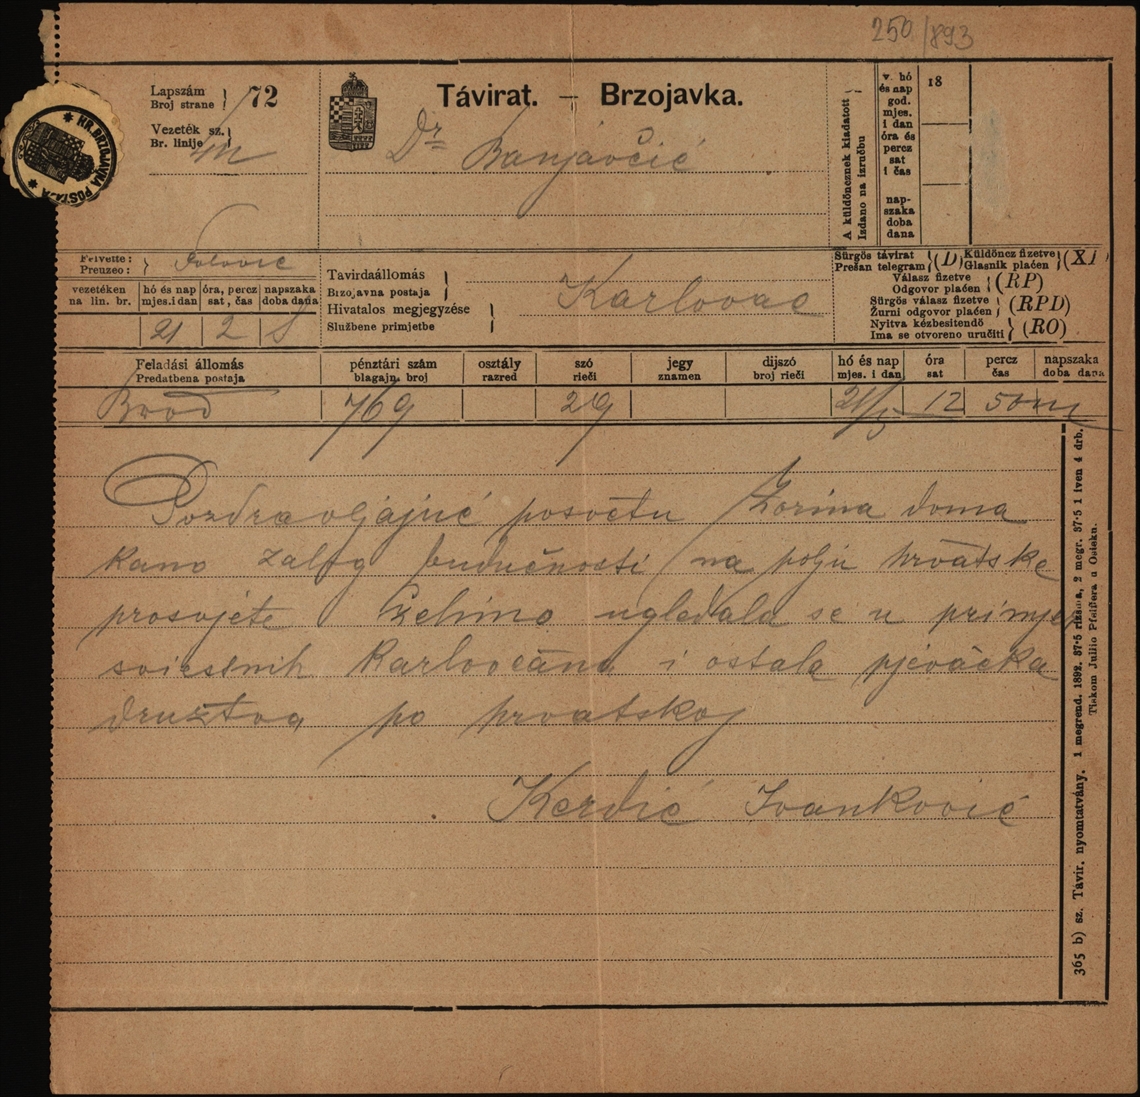 250/893
Lapszám
Broj strane } 72
Vezeték sz.
Br. linije }
Távirat. – Brzojavka.
Dr Banjavčić
A küldöncznek kiadatott
Izdano na izručbu
v. hó
és nap
god.
mjes.
i dan
óra és
percz
sat
i čas
nap-
szaka
doba
dana
18
HR. BRZOJAVNA POSTAJA
Felvette :
Preuzeo : }
vezetéken
na lin. br.
hó és nap
mjes. i dan
óra, percz
sat, čas
napszaka
doba dana
21 2
Tavirdaállomás
Brzojavna postaja }
Karlovac
Hivatalos megjegyzése
Službene primjetbe }
Sürgős távirat
Prešan telegram } (D)
Küldöncz fizetve
Glasnik plaćen } (XP)
Válasz fizetve
Odgovor plaćen } (RP)
Sürgős válasz fizetve
Žurni odgovor plaćen } (RPD)
Nyitva kézbesitendő
Ima se otvoreno uručiti } (RO)
Feladási állomás
Predatbena postaja
pénztári szám
blagajn. broj
osztály
razred
szó
rieči
jegy
znamen
dijszó
broj rieči
hó és nap
mjes. i dan
óra
sat
percz
čas
napszaka
doba dana
Brod 769 29 21/5 12 50
Pozdravljajuć posvetu Zorina doma
kano zalog budućnosti na polju hrvatske
prosvjete želimo ugledala se u primjer
sviestnih Karlovčana i ostala pjevačka
družtva po hrvatskoj
Kerdić Ivanković
365 b) sz. Távir. nyomtatvány. 1 megrend. 1892. 37·5 rizsma, 2 megr. 37·5 1 iven 4 drb.
Tiskom Julijo Pfeiffera u Osieku.